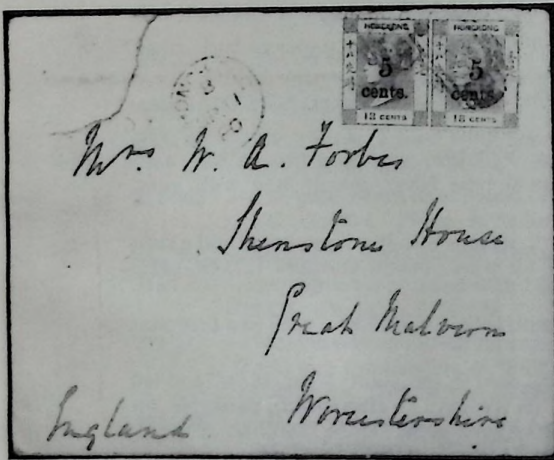 HONGKONG HONGKONG
5 5
cents. cents.
18 CENTS 18 CENTS
Mrs. W. A. Forbes
Shenstone House
Great Malvern
Worcestershire
England